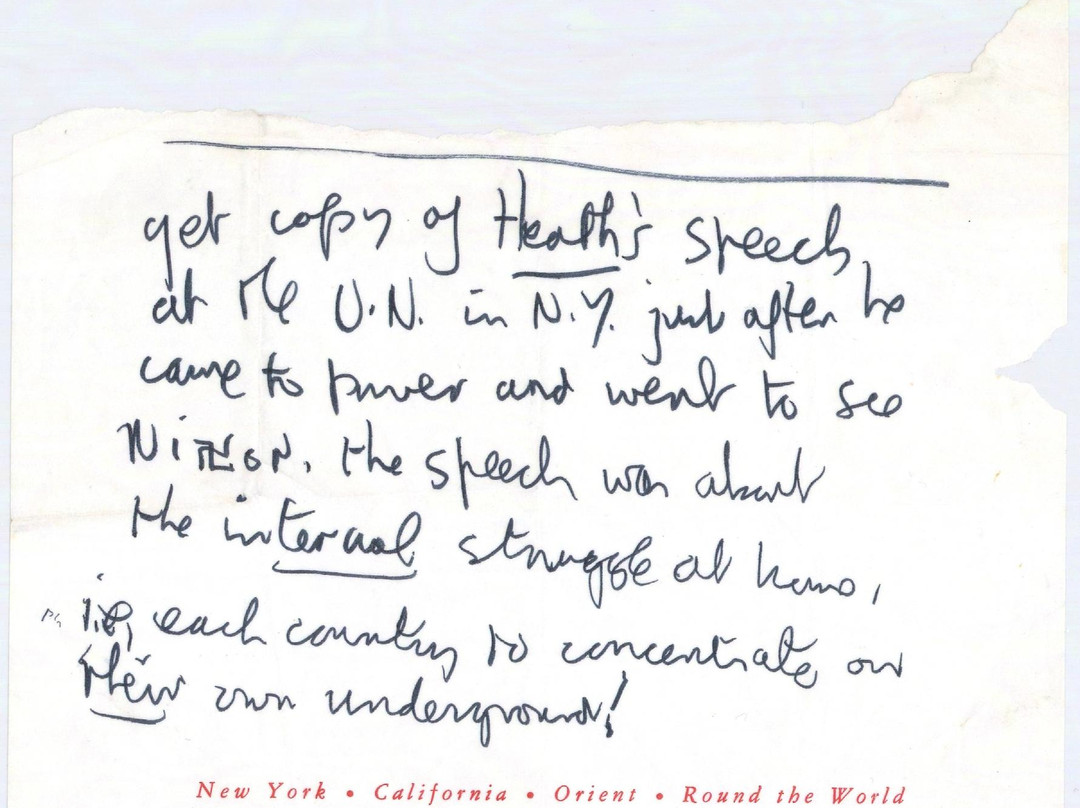 get copy of Heath's speech,
at the U.N. in N.Y. just after he
came to power and went to see
Ni卐on. the speech was about
the internal struggle at home,
i.e, each country to concentrate on
their own underground!
New York • California • Orient • Round the World